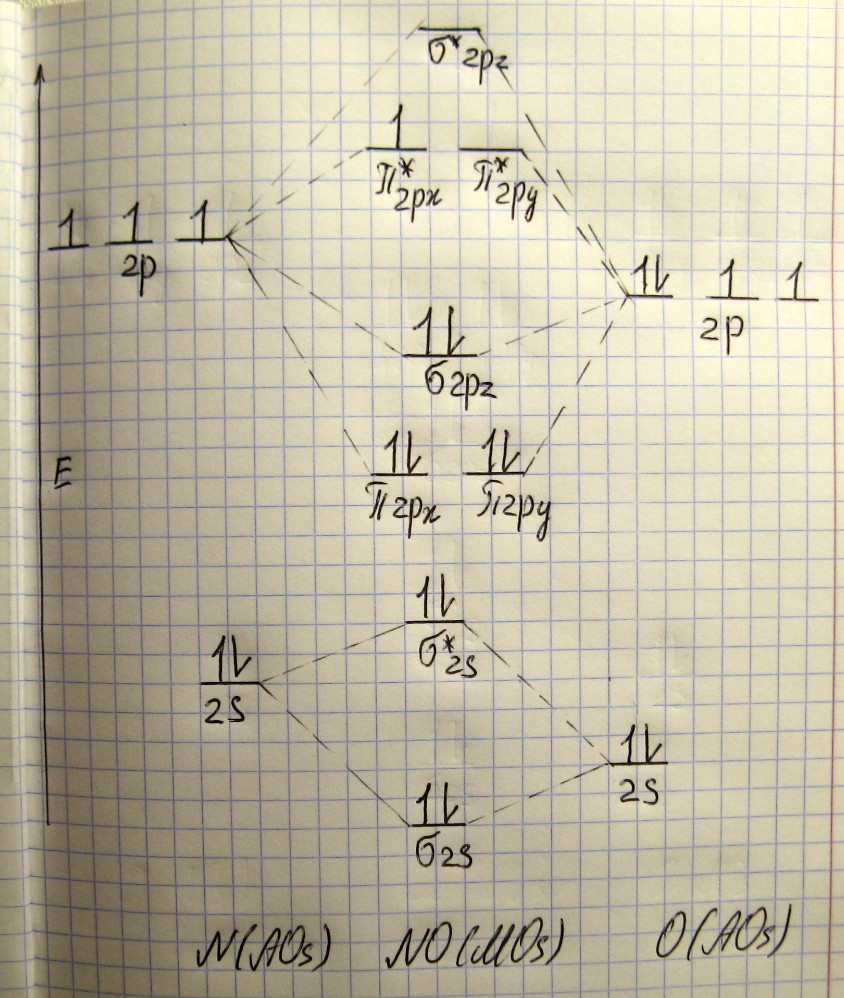 σ*2pz
1
π*2px π*2py
1 1 1
2p
1⇂ 1 1
2p
1⇂
σ2pz
E
1⇂ 1⇂
π2px π2py
1⇂
σ*2s
1⇂
2s
1⇂
2s
1⇂
σ2s
N(AOs) NO(MOs) O(AOs)